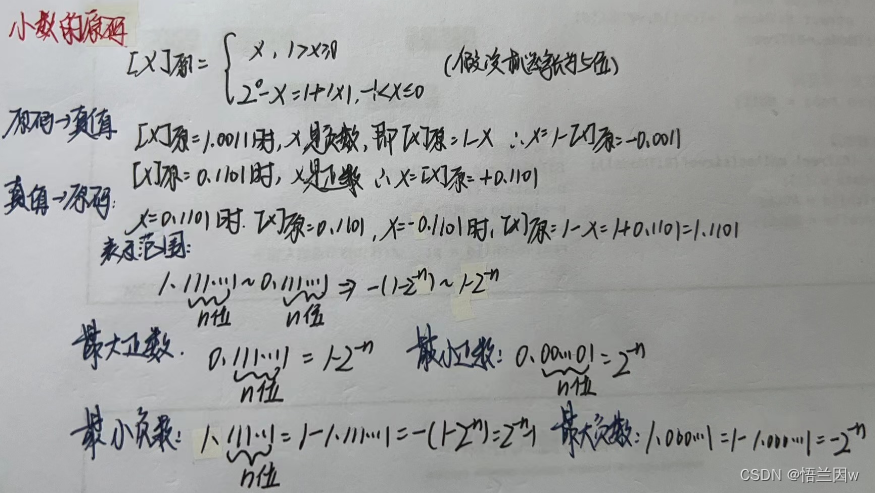 小数的原码
[X]原={ x, 1>x≥0 (假设机器字长为5位)
2⁰-x=1+|x|, -1<x≤0
原码→真值 [X]原=1.0011时, x是负数, 即[X]原=1-x ∴x=1-[X]原=-0.0011
[X]原=0.1101时, x是正数 ∴x=[X]原=+0.1101
真值→原码:
x=0.1101时. [X]原=0.1101, x=-0.1101时, [X]原=1-x=1+0.1101=1.1101
表示范围:
1.111...1~0.111...1⇒-(1-2⁻ⁿ)~1-2⁻ⁿ
n位 n位
最大正数. 0.111...1=1-2⁻ⁿ 最小正数: 0.00...01=2⁻ⁿ
n位 n位
最小负数: 1.111...1=1-1.111...1=-(1-2⁻ⁿ)=2⁻ⁿ-1 最大负数: 1.000...1=1-1.000...1=-2⁻ⁿ
n位
CSDN @悟兰因w